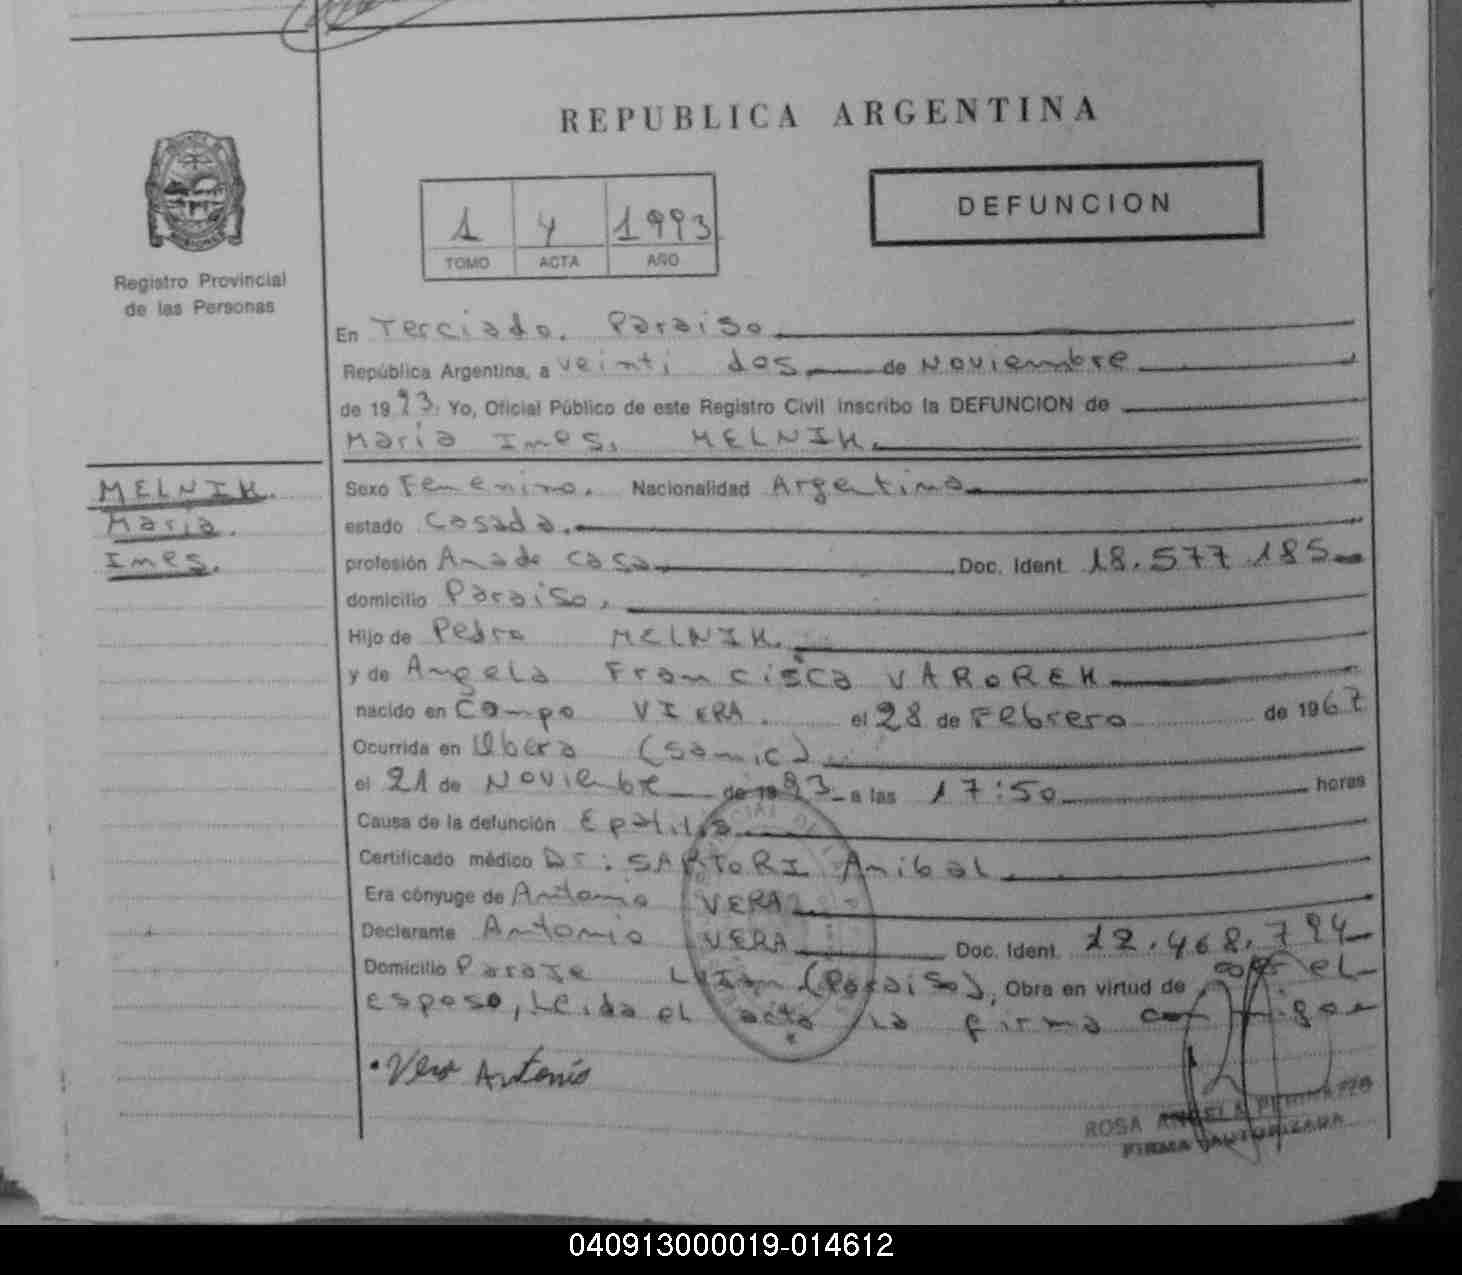 REPUBLICA ARGENTINA
DEFUNCION
1 4 1993
TOMO ACTA AÑO
Registro Provincial
de las Personas
En Terciado. Paraiso
República Argentina, a veinti dos de Noviembre
de 1993. Yo, Oficial Público de este Registro Civil inscribo la DEFUNCION de
Maria Ines. MELNIK.
MELNIK.
Maria.
Ines.
Sexo Femenino. Nacionalidad Argentina
estado Casada.
profesión Ama de casa Doc. Ident. 18.577.185
domicilio Paraiso.
Hijo de Pedro MELNIK.
y de Angela Francisca VAROREK
nacido en Campo VIERA. el 28 de Febrero de 1967
Ocurrida en Obera (Samic)
el 21 de Noviembre de 1993 a las 17:50 horas
Causa de la defunción Epatitis
Certificado médico Dr: SARTORI Anibal
Era cónyuge de Antonio VERA
Declarante Antonio VERA Doc. Ident. 12.468.794
Domicilio Paraje Lujan (Paraiso), Obra en virtud de ser el
esposo, Leida el acta la firma conmigo
Vera Antonio
ROSA ANGELA
FIRMA AUTORIZADA
040913000019-014612